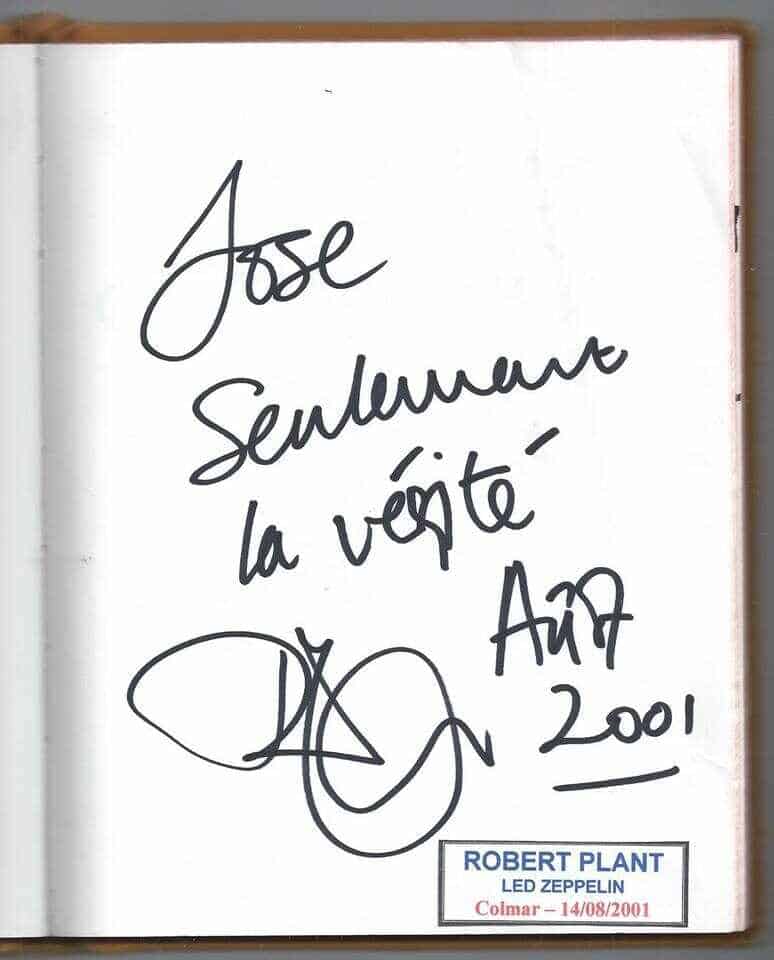 Jose
Seulement
la vérité
Août
2001
ROBERT PLANT
LED ZEPPELIN
Colmar – 14/08/2001